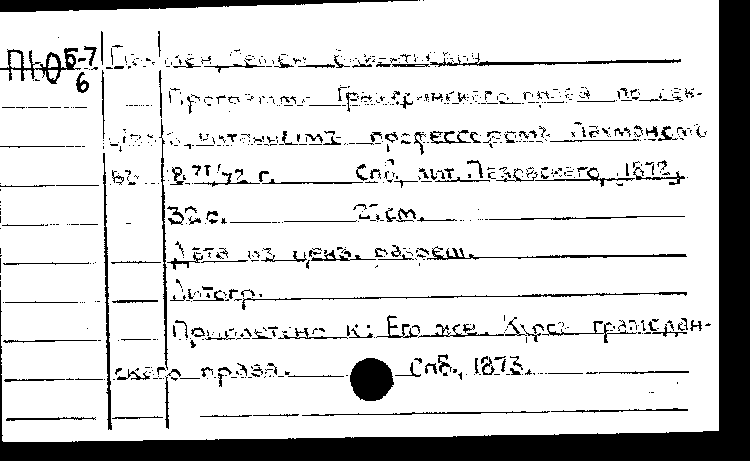 ПЮ Б-7
6
Семен Викентьевич
Программа Гражданского права по лек-
ціямъ, читаннымъ профессоромъ Пахманомъ
въ 1871/72 г. Спб, лит. Лазовского, 1872.
32 с. 21 см.
Дата из ценз. разреш.
Литогр.
Приплетено к: Его же. Курсъ граждан-
скаго права. Спб., 1873.